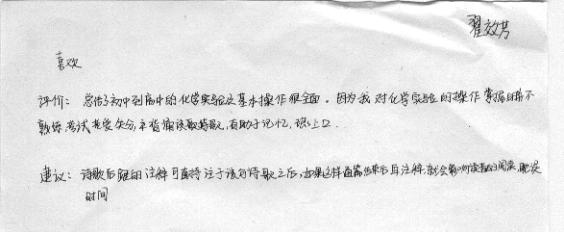 翟效芳
喜欢
评价：总结了初中到高中的化学实验及基本操作很全面。因为我对化学实验的操作掌握的非常不
熟练,考试老爱失分,这首诗读起来,有助于记忆,上口.
建议：诗歌后跟的注释可直接注于该句诗歌之后,如果这样通篇出来后再注释,就会影响读者,耽误
时间